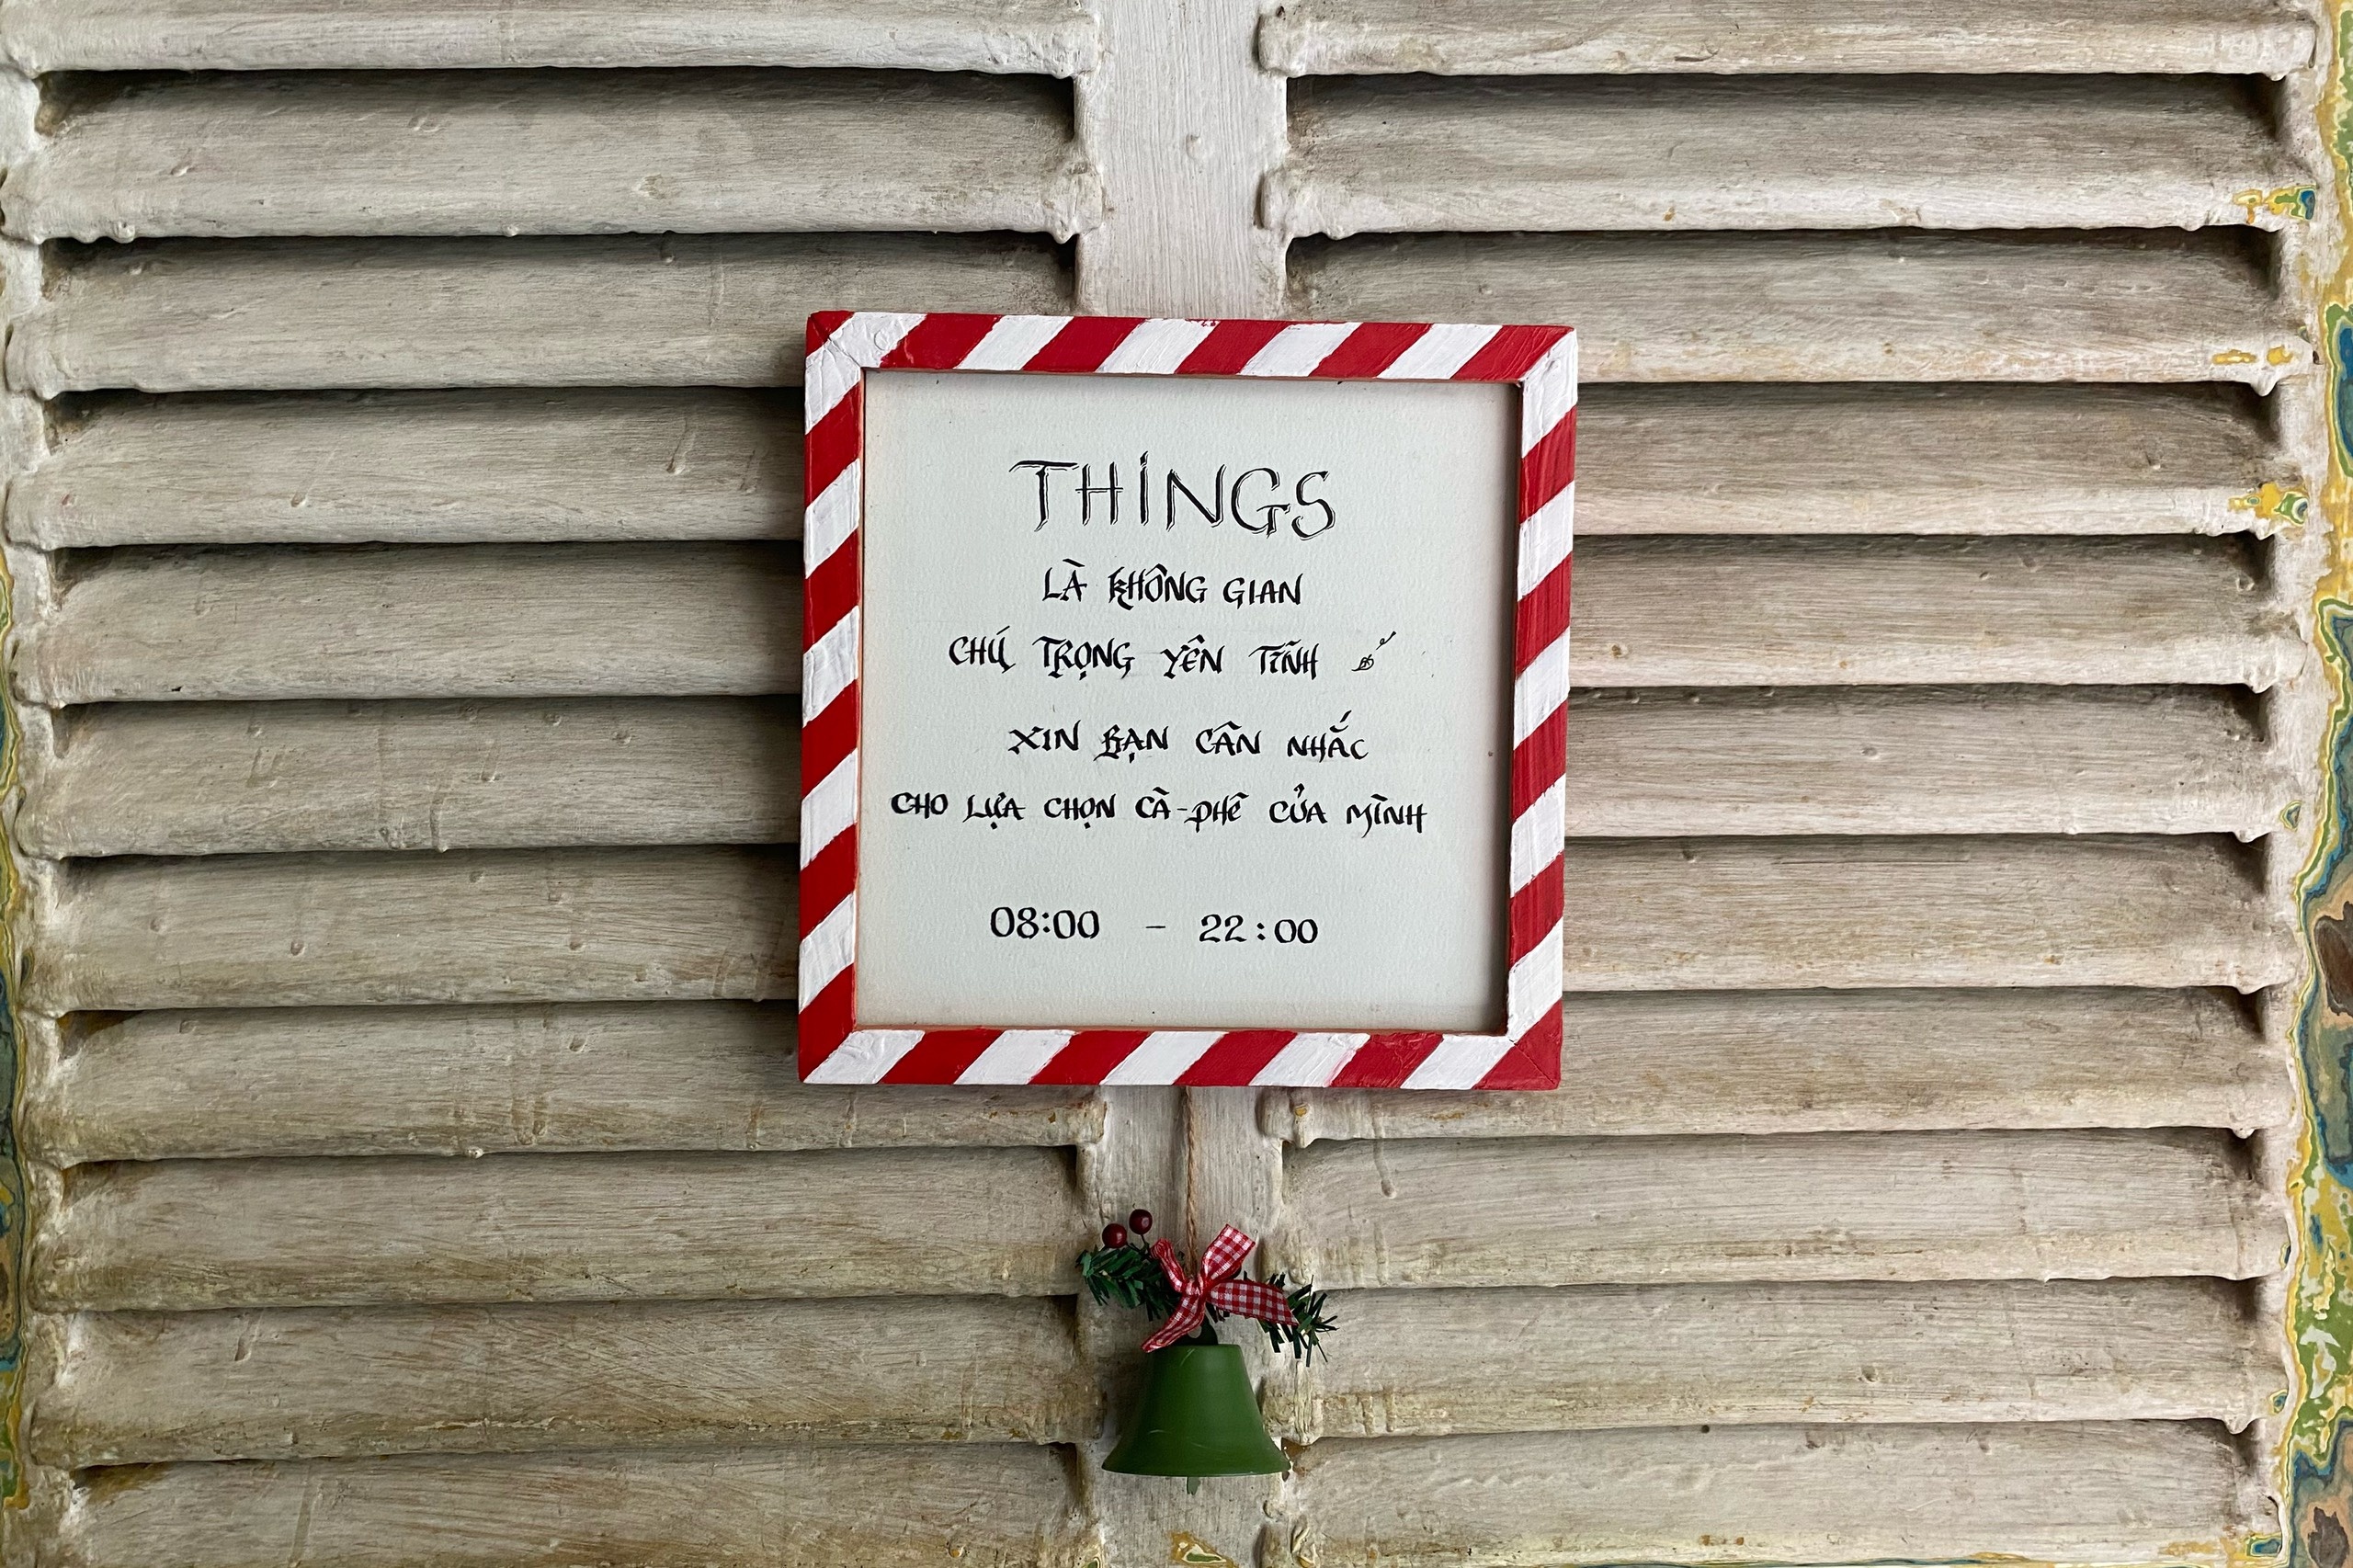 THINGS
LÀ KHÔNG GIAN
CHÚ TRỌNG YÊN TĨNH
XIN BẠN CÂN NHẮC
CHO LỰA CHỌN CÀ-PHÊ CỦA MÌNH
08:00 - 22:00